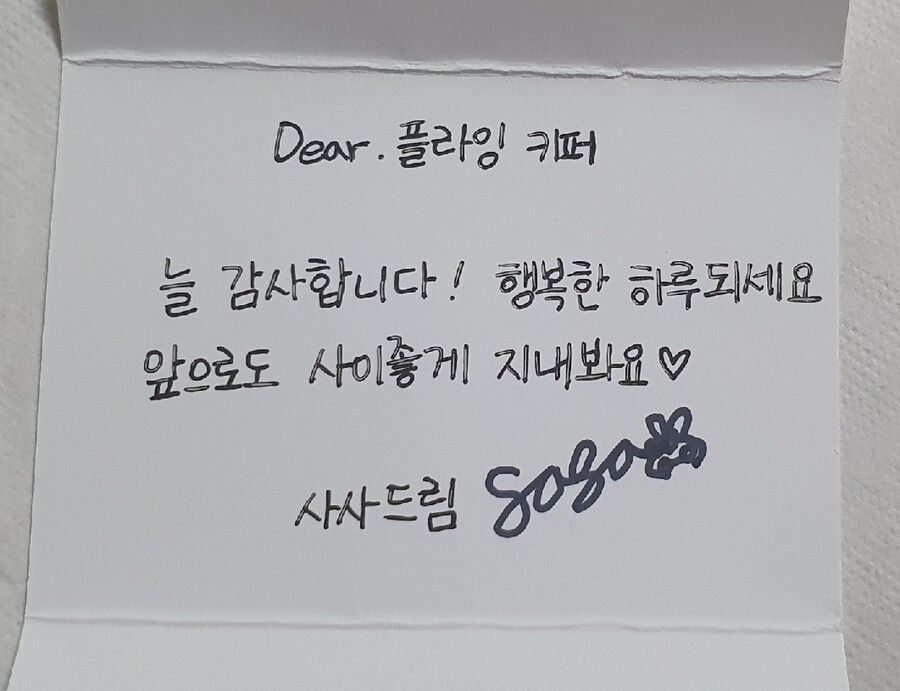 Dear. 플라잉 키퍼
늘 감사합니다! 행복한 하루되세요
앞으로도 사이좋게 지내봐요♡
사사드림 Sasa